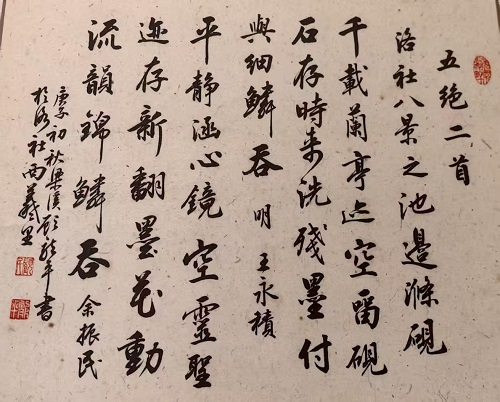 五绝二首
洛社八景之池邉滌硯
千載蘭亭迹空留硯
石存時来洗殘墨付
與細鱗吞 明 王永積
平静涵心鏡空靈聖
迹存新翻墨花動
流韻錦鱗吞 余振民
庚子初秋梁溪 書
於洛社兩羲里